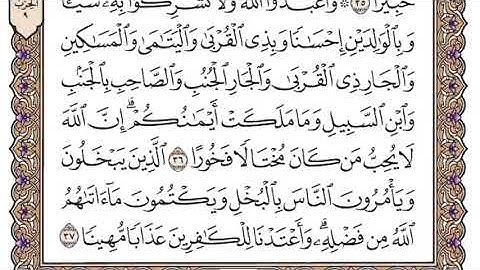 خَبِيرًا ٣٥ ۞ وَٱعْبُدُوا۟ ٱللَّهَ وَلَا تُشْرِكُوا۟ بِهِۦ شَيْـًٔا
وَبِٱلْوَٰلِدَيْنِ إِحْسَٰنًا وَبِذِى ٱلْقُرْبَىٰ وَٱلْيَتَٰمَىٰ وَٱلْمَسَٰكِينِ
وَٱلْجَارِ ذِى ٱلْقُرْبَىٰ وَٱلْجَارِ ٱلْجُنُبِ وَٱلصَّاحِبِ بِٱلْجَنۢبِ
وَٱبْنِ ٱلسَّبِيلِ وَمَا مَلَكَتْ أَيْمَٰنُكُمْ ۗ إِنَّ ٱللَّهَ
لَا يُحِبُّ مَن كَانَ مُخْتَالًا فَخُورًا ٣٦ ٱلَّذِينَ يَبْخَلُونَ
وَيَأْمُرُونَ ٱلنَّاسَ بِٱلْبُخْلِ وَيَكْتُمُونَ مَآ ءَاتَىٰهُمُ
ٱللَّهُ مِن فَضْلِهِۦ ۗ وَأَعْتَدْنَا لِلْكَٰفِرِينَ عَذَابًا مُّهِينًا ٣٧
الحزب
٩